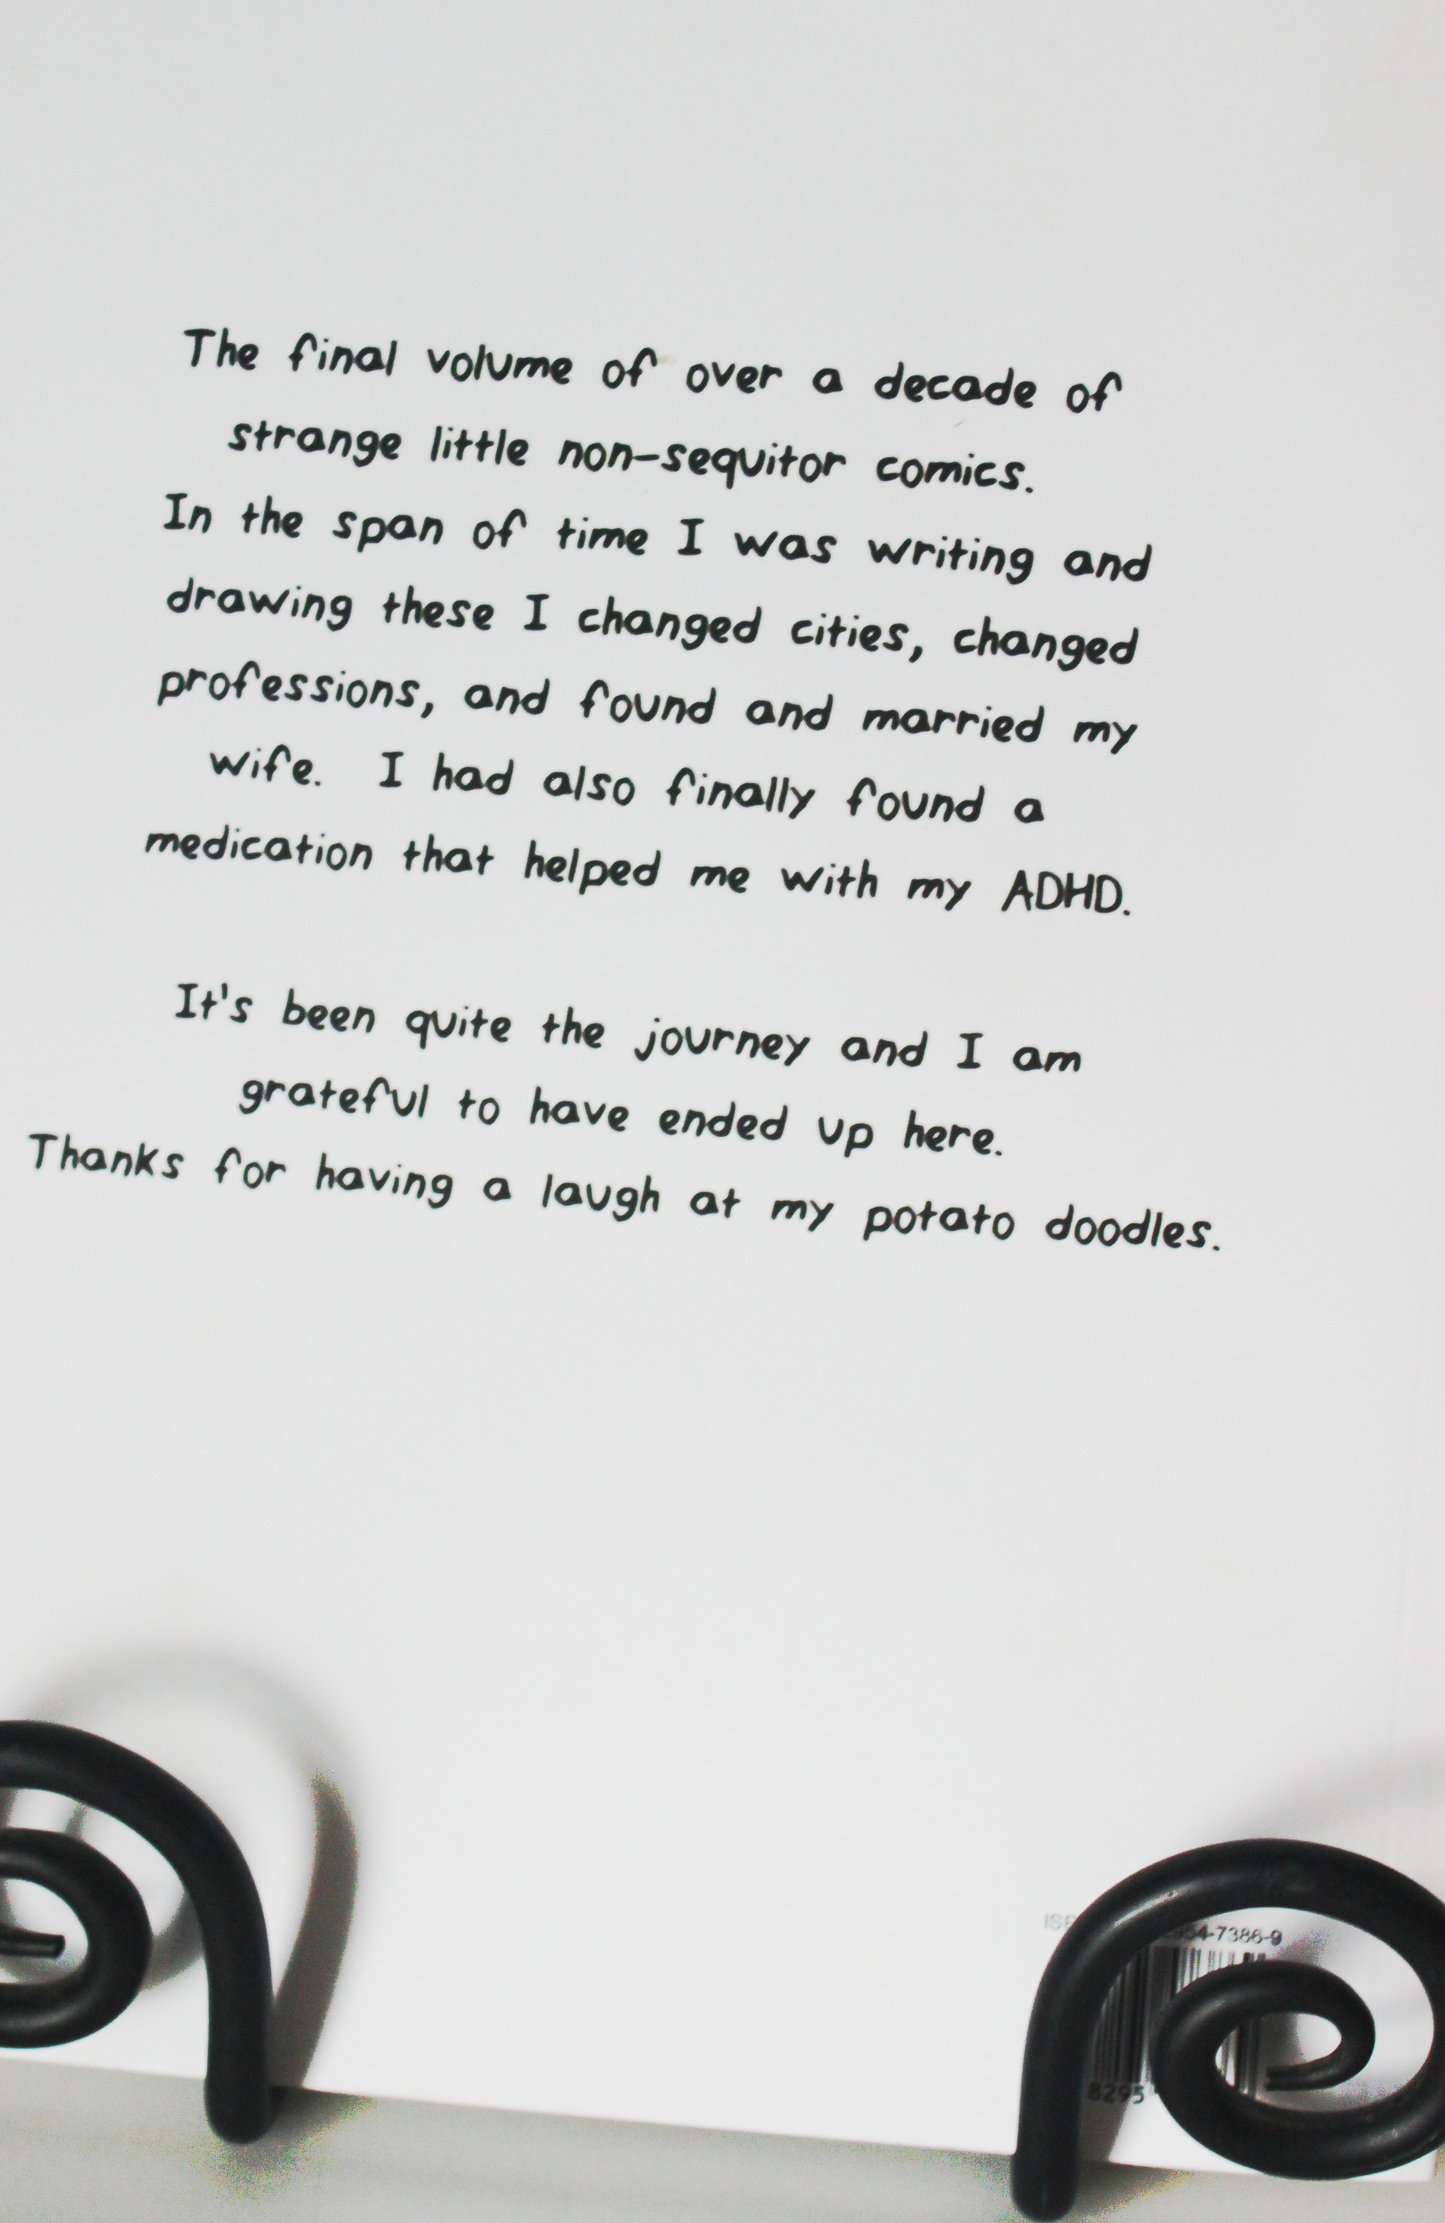 The final volume of over a decade of
strange little non-sequitor comics.
In the span of time I was writing and
drawing these I changed cities, changed
professions, and found and married my
wife. I had also finally found a
medication that helped me with my ADHD.
It's been quite the journey and I am
grateful to have ended up here.
Thanks for having a laugh at my potato doodles.
-7386-9
8295